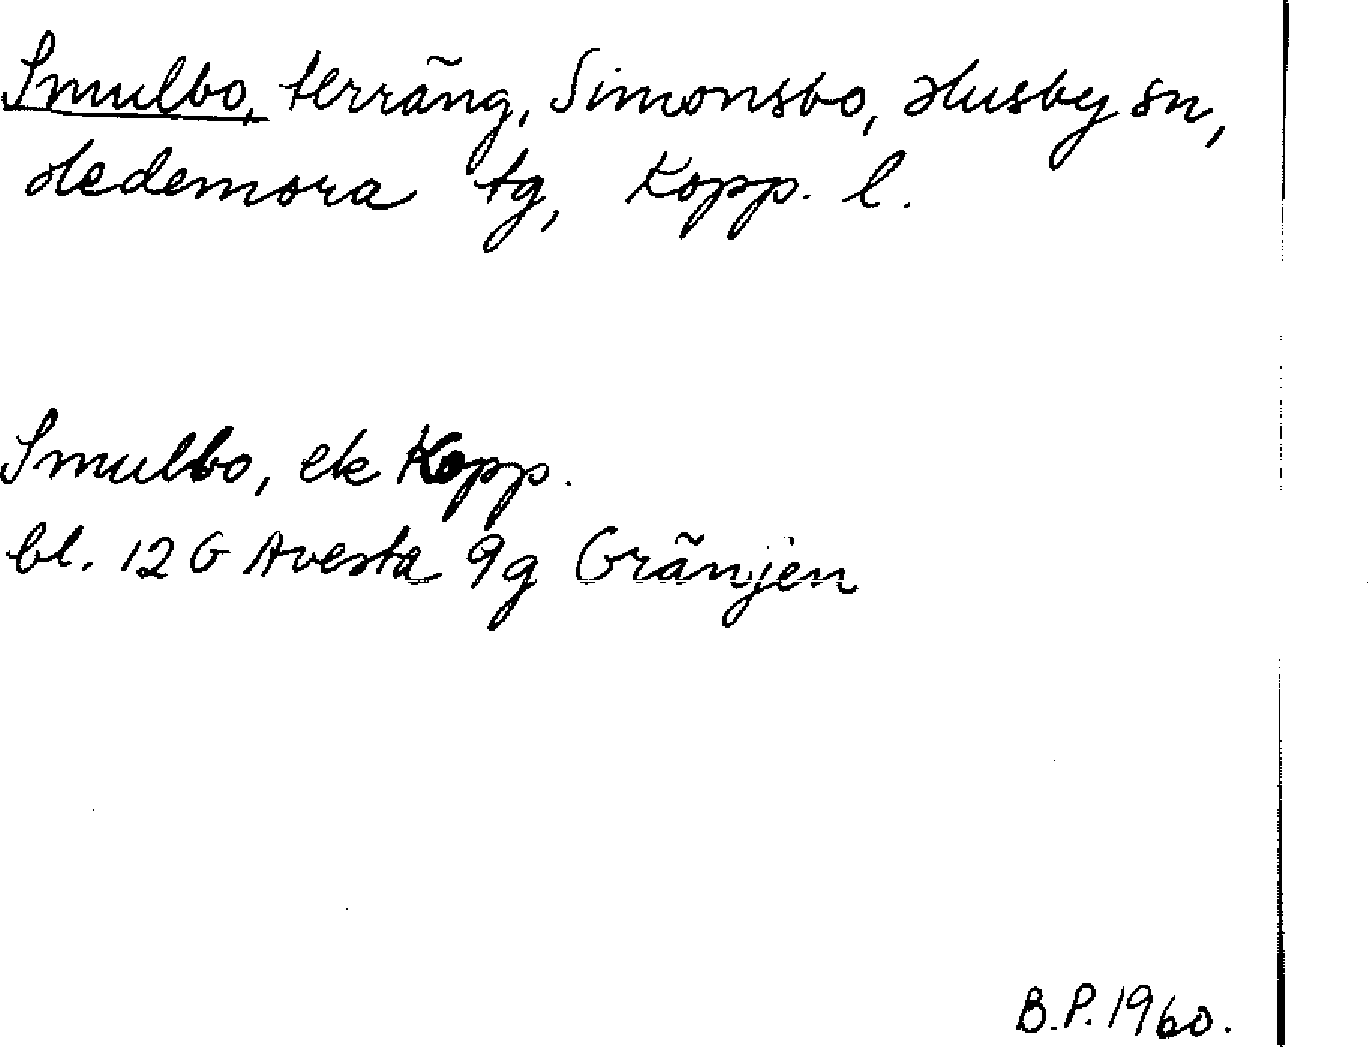 Smulbo, terräng, Simonsbo, Husby sn,
Hedemora tg, Kopp. l.
Smulbo, ek Kopp.
bl. 12 G Avesta 9g Gränjen
B.P. 1960.